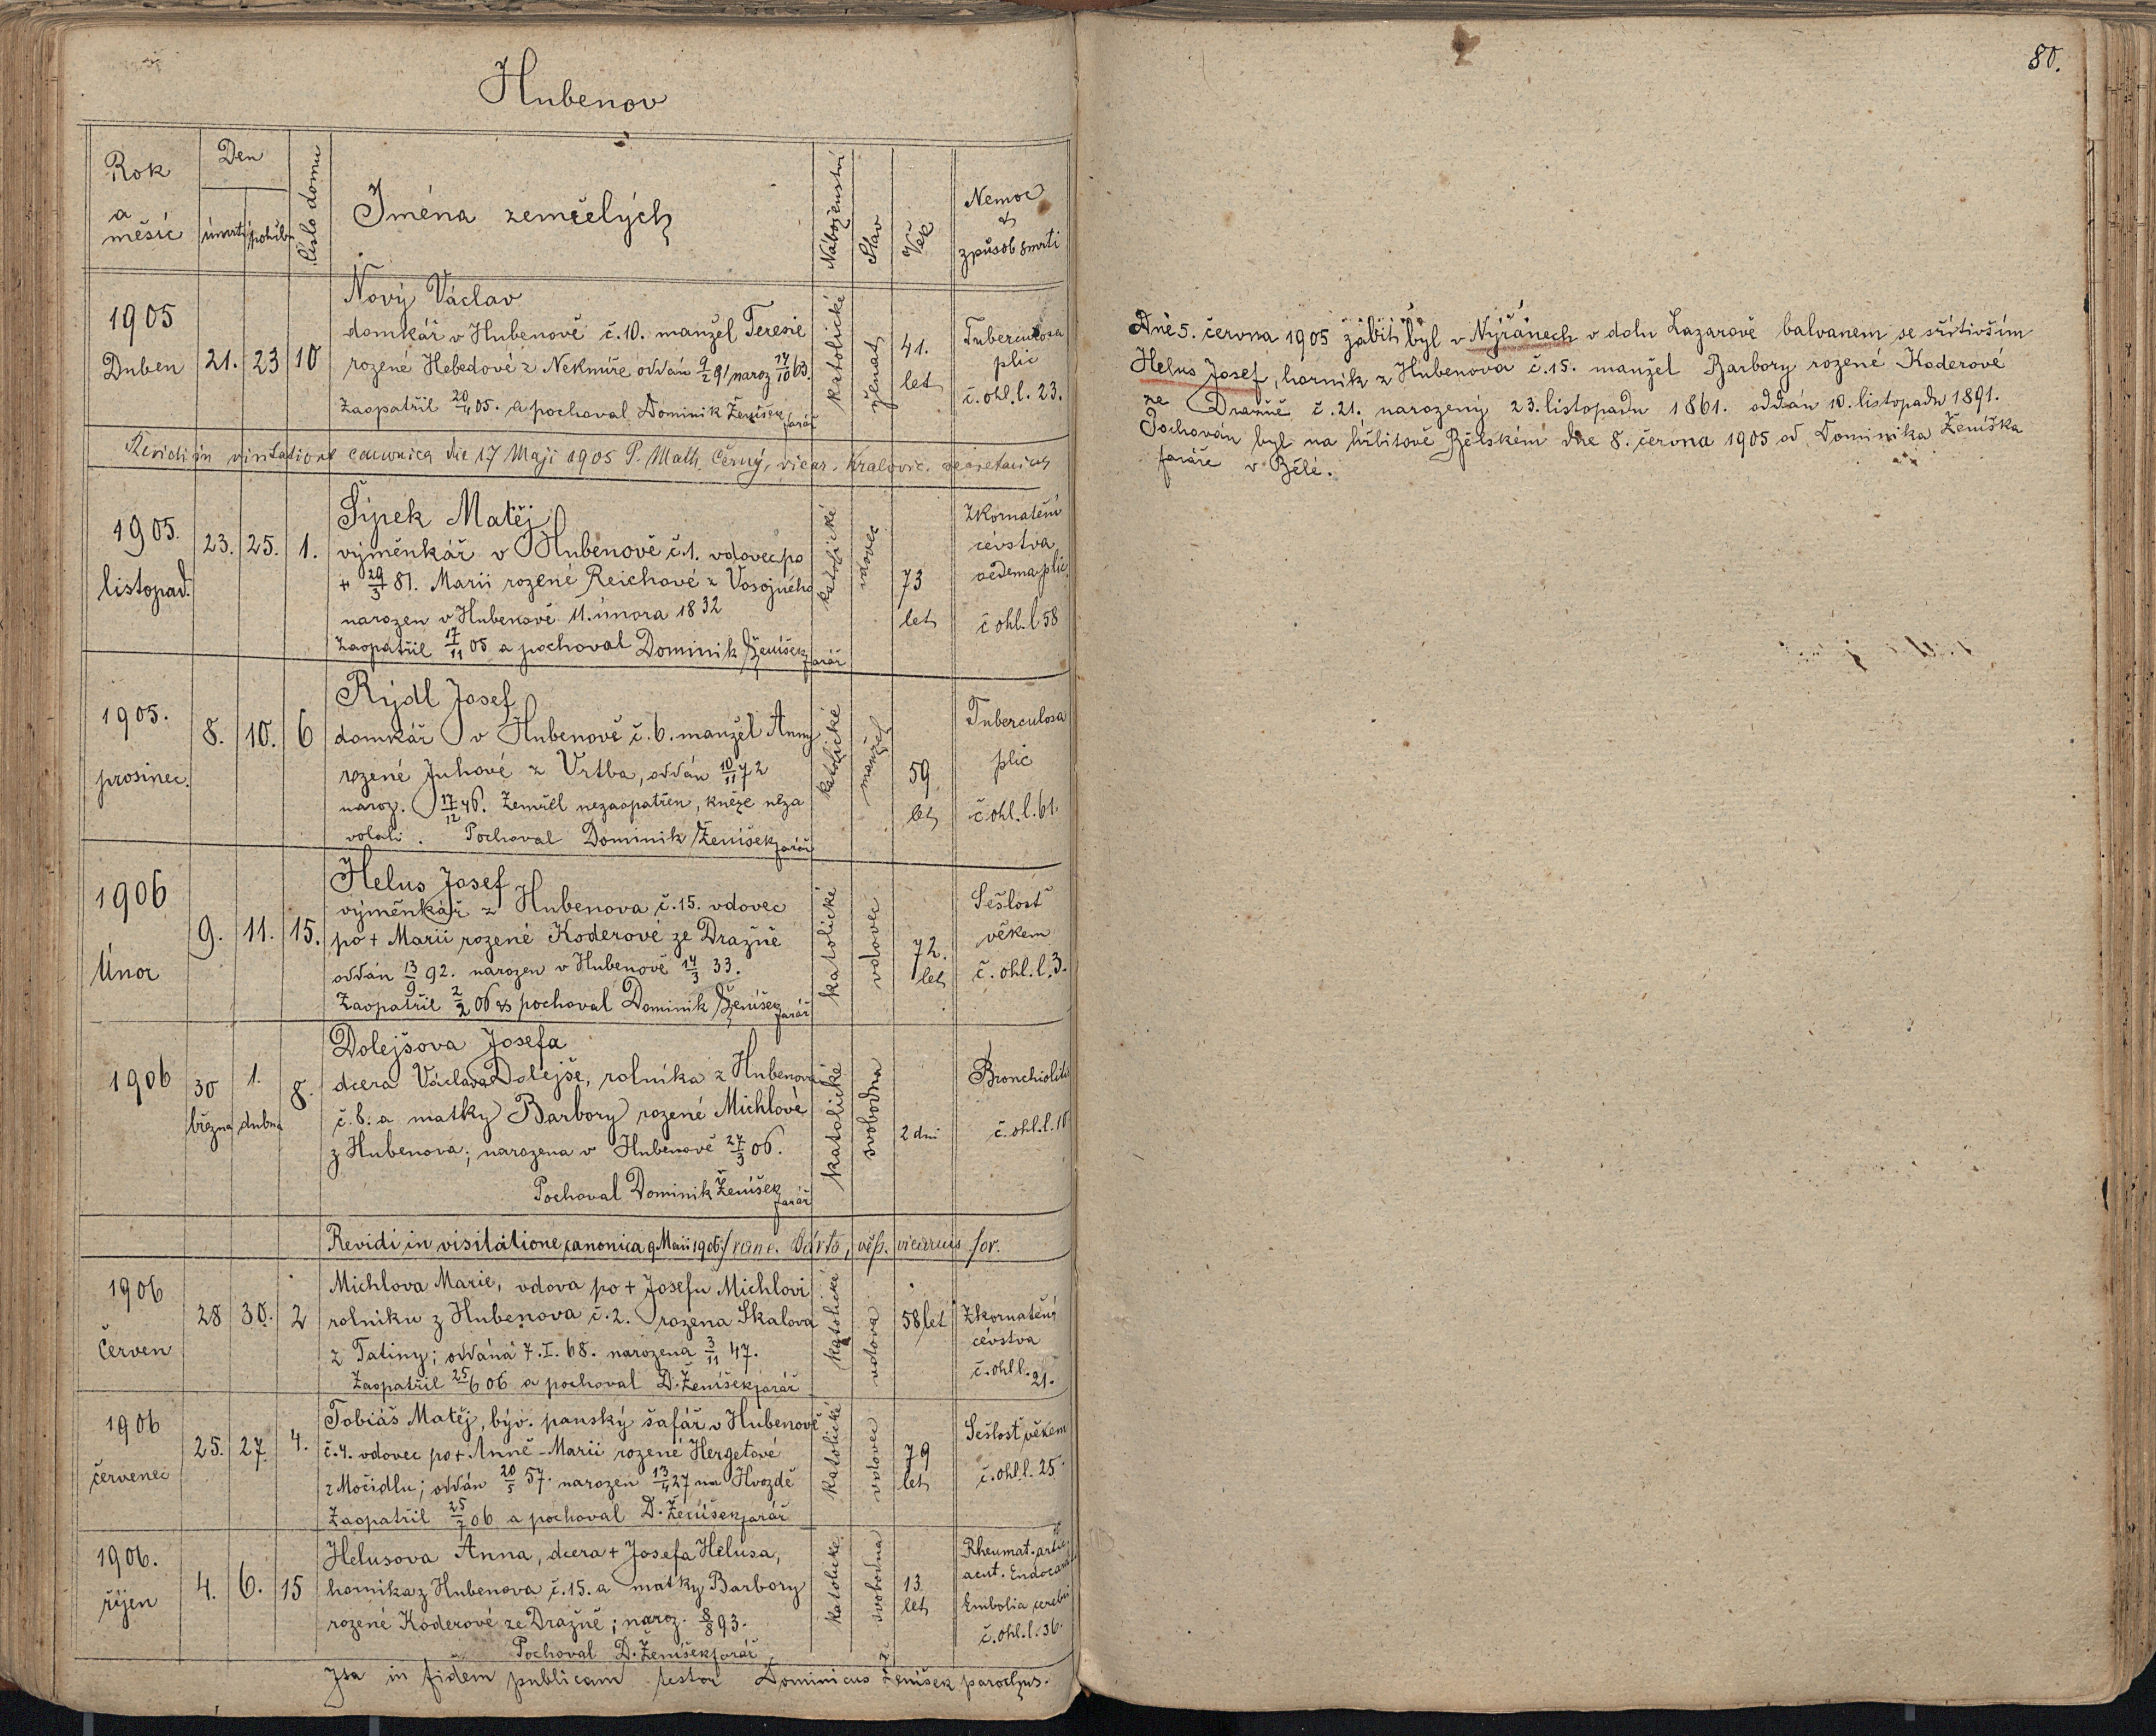 Hubenov
Rok a měsíc
Den
úmrtí
pohřbu
Číslo domu
Jména zemřelých
Náboženství
Stav
Věk
Nemoc a způsob smrti
1905 Duben
21.
23
10
Nový Václav
domkář v Hubenově č. 10. manžel Teresie
rozené Hebedové z Nekmíře oddán 9/2 91 naroz 14/10 63.
Zaopatřil 20/4 05. a pochoval Dominik Ženíšek farář
katolické
ženat
41. let
Tuberculosa
plic
č. ohl. l. 23.
Revidi in visitatione canonica die 17 Maji 1905 P. Math. Černý, vicar. Kralovic. secretarius
1905. listopad.
23.
25.
1.
Šípek Matěj
výměnkář v Hubenově č. 1. vdovec po
+ 29/3 81. Marii rozené Reichové z Vosojného
narozen v Hubenově 11. února 1832
Zaopatřil 17/11 05 a pochoval Dominik Ženíšek farář
katolické
vdovec
73 let
Zkornatění
cévstva
oedema plic.
č ohl. l 58
1905. prosinec.
8.
10.
6
Rýdl Josef
domkář v Hubenově č. 6. manžel Anny
rozené Juhové z Vrtba, oddán 10/11 72
naroz. 17/12 46. Zemřel nezaopatřen, kněze neza
volali. Pochoval Dominik Ženíšek farář
katolické
manžel
59 let
Tuberculosa
plic
č ohl. l. 61.
1906 Únor
9.
11.
15.
Helus Josef
výměnkář z Hubenova č. 15. vdovec
po + Marii rozené Koderové ze Dražně
oddán 13/9 92. narozen v Hubenově 14/3 33.
Zaopatřil 2/2 06 a pochoval Dominik Ženíšek farář
katolické
vdovec
72. let
Sešlost
věkem
č. ohl. l. 3.
1906
30 března
1. dubna
8.
Dolejšova Josefa
dcera Václava Dolejše, rolníka z Hubenova
č. 8. a matky Barbory rozené Michlové
z Hubenova; narozena v Hubenově 27/3 06.
Pochoval Dominik Ženíšek farář
katolické
svobodna
2 dni
Bronchiolitis
č. ohl. l. 10
Revidi in visitatione canonica 9 Maii 1906 Franc. Bárta, vicarius for.
1906 Červen
28
30.
2
Michlova Marie, vdova po + Josefu Michlovi
rolniku z Hubenova č. 2. rozena Skalova
z Tatiny; oddáná 7. I. 68. narozena 3/11 47.
Zaopatřil 25/6 06 a pochoval D. Ženíšek farář
katolické
vdova
58 let
Zkornatění
cévstva
č. ohl l. 21.
1906 červenec
25.
27.
4.
Tobiáš Matěj, býv. panský šafář v Hubenově
č. 4. vdovec po + Anně-Marii rozené Hergetové
z Močidlu; oddán 20/5 57. narozen 13/4 27 na Hvozdě
Zaopatřil 25/7 06 a pochoval D. Ženíšek farář
katolické
vdovec
79 let
Sešlost věkem
č. ohl. l. 25
1906. říjen
4.
6.
15
Helusova Anna, dcera + Josefa Helusa,
horníka z Hubenova č. 15. a matky Barbory
rozené Koderové ze Dražně; naroz. 8/8 93.
Pochoval D. Ženíšek farář
katolické
svobodna
13 let
Rheumat. artic.
acut. Endocard.
Embolia cerebri
č. ohl. l. 36.
Ita in fidem publicam testor Dominicus Ženíšek parochus.
80.
Dne 5. června 1905 zabit byl v Nýřanech v dolu Lazarově balvanem se sřítivším
Helus Josef, horník z Hubenova č. 15. manžel Barbory rozené Koderové
ze Dražně č. 21. narozený 23. listopadu 1861. oddán 10. listopadu 1891.
Pochován byl na hřbitově Bělském dne 8. června 1905 od Dominika Ženíška
faráře v Bělé.